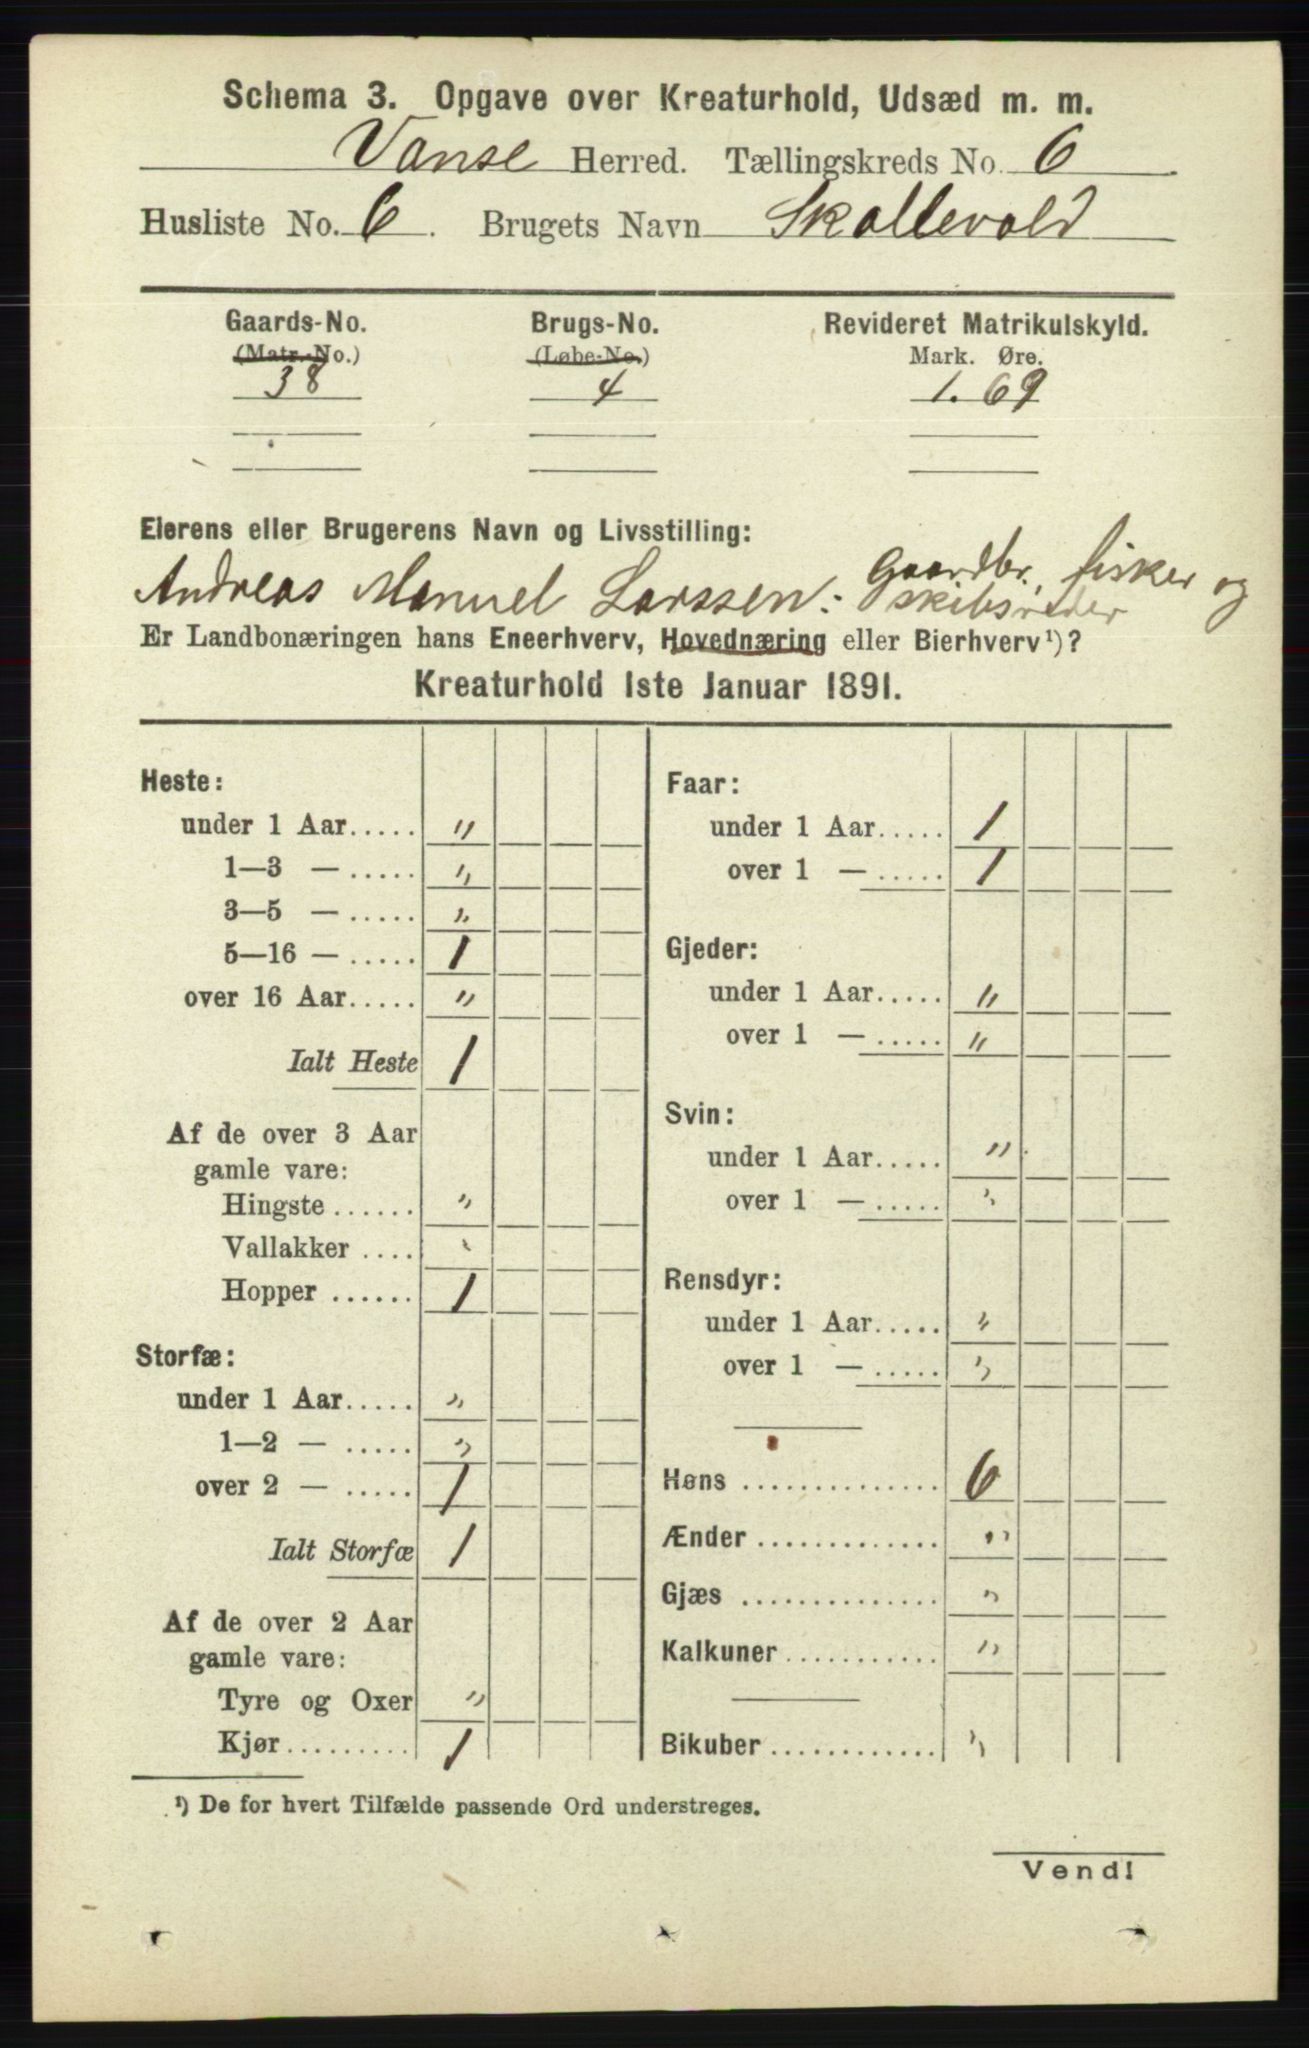 Schema 3. Opgave over Kreaturhold, Udsæd m. m.
Vanse Herred. Tællingskreds No. 6
Husliste No. 6. Brugets Navn Skollevold
Gaards-No. Brugs-No. Revideret Matrikulskyld.
(Matr.-No.) (Løbe-No.) Mark. Øre.
38 4 1. 69
Eierens eller Brugerens Navn og Livsstilling:
Andreas Manuel Larssen: Gaardbr. fisker og
skibsreder
Er Landbonæringen hans Eneerhverv, Hovednæring eller Bierhverv¹)?
Kreaturhold 1ste Januar 1891.
Heste:
under 1 Aar..... "
1—3 — ..... "
3—5 — ..... "
5—16 — ..... 1
over 16 Aar..... "
Ialt Heste 1
Af de over 3 Aar
gamle vare:
Hingste ...... "
Vallakker .... "
Hopper ...... 1
Storfæ:
under 1 Aar..... "
1—2 — ..... "
over 2 — ..... 1
Ialt Storfæ 1
Af de over 2 Aar
gamle vare:
Tyre og Oxer "
Kjør.......... 1
Faar:
under 1 Aar..... 1
over 1 — ..... 1
Gjeder:
under 1 Aar..... "
over 1 — ..... "
Svin:
under 1 Aar..... "
over 1 — ..... "
Rensdyr:
under 1 Aar..... "
over 1 — ..... "
Høns .............. 6
Ænder ............. "
Gjæs .............. "
Kalkuner ........... "
Bikuber ............ "
¹) De for hvert Tilfælde passende Ord understreges.
Vend!